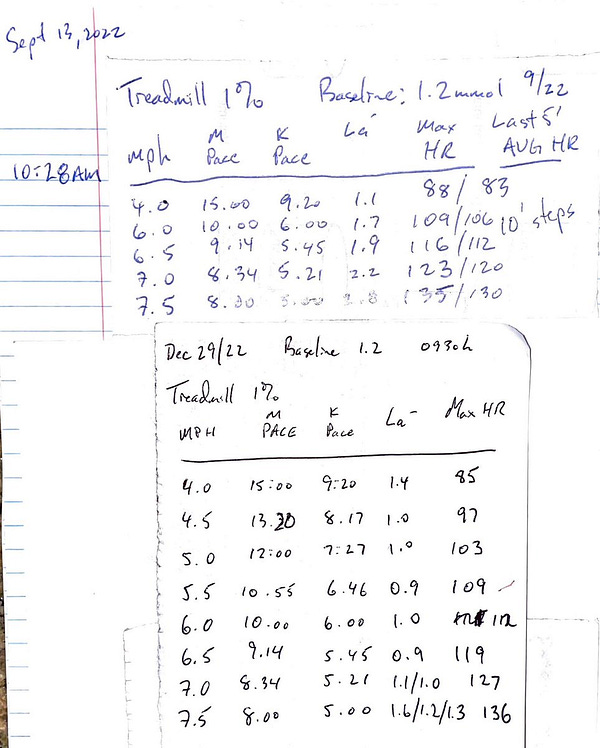 Sept 13, 2022
Treadmill 1% Baseline: 1.2 mmol 9/22
mph M Pace K Pace La⁻ Max HR Last 5' AVG HR
10:28AM
4.0 15.00 9.20 1.1 88/83
6.0 10.00 6.00 1.7 109/106 10' steps
6.5 9.14 5.45 1.9 116/112
7.0 8.34 5.21 2.2 123/120
7.5 8.00 5.00 2.8 135/130
Dec 29/22 Baseline 1.2 0930h
Treadmill 1%
MPH M PACE K Pace La⁻ Max HR
4.0 15:00 9:20 1.4 85
4.5 13.20 8.17 1.0 97
5.0 12:00 7:27 1.0 103
5.5 10.55 6.46 0.9 109
6.0 10.00 6.00 1.0 112
6.5 9.14 5.45 0.9 119
7.0 8.34 5.21 1.1/1.0 127
7.5 8.00 5.00 1.6/1.2/1.3 136